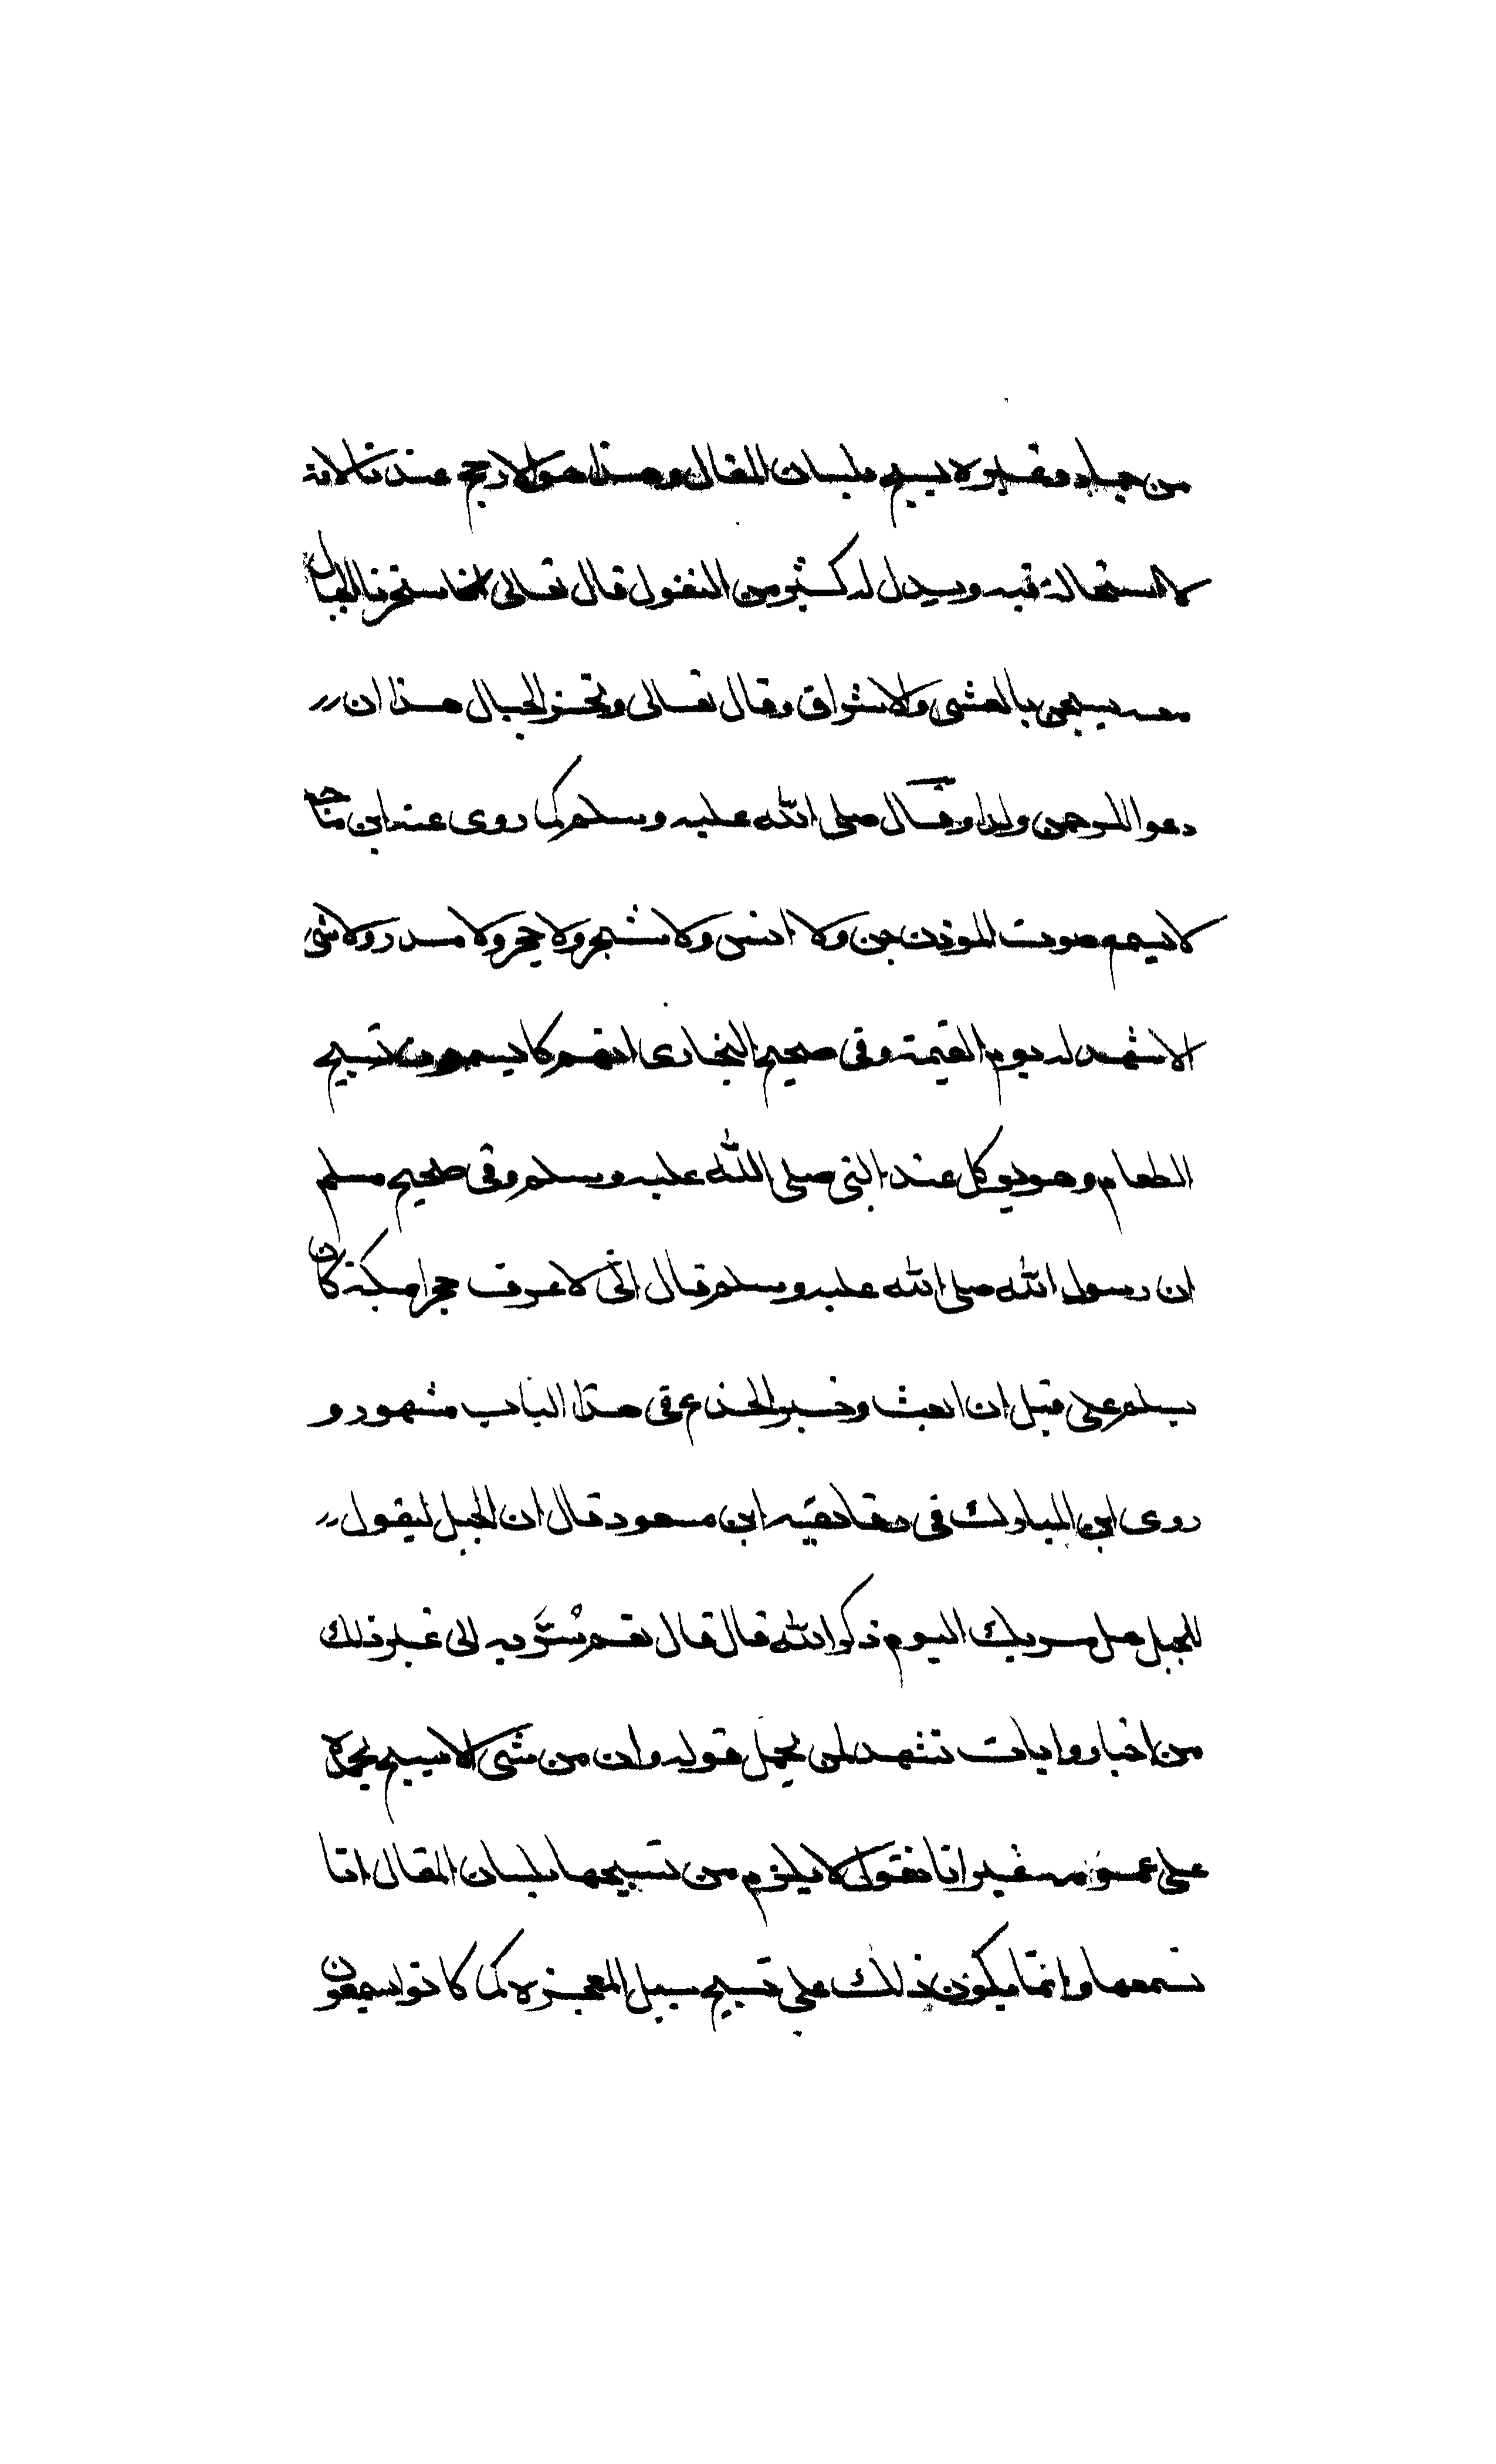 من جماد وغيره يسبح بلسان المقال وهذا هو الارجح عندنا لانه
لا استحالة فيه ويدل له كثير من النقول قال تعالى انا سخرنا الجبال
معه يسبحن بالعشى والاشراق وقال تعالى وتخر الجبال هذا ان
دعوا للرحمن ولدا وقال صلى الله عليه وسلم كما روى عنه ابن ماجه
لا يسمع صوت الموذن جن ولا انس ولا شجر ولا حجر ولا مدر ولا شى
الا شهد له يوم القيمة وفى صحيح البخارى انهم كا يسمعون تسبيح
الطعام وهو يوكل عند النبى صلى الله عليه وسلم وفى صحيح مسلم
ان رسول الله صلى الله عليه وسلم قال انى لاعرف حجرا بمكة كان
يسلم على قبل ان ابعث وخبر الجذع فى هذا الباب مشهور و
روى ابن المبارك فى دقايقه ابن مسعود قال ان الجبل ليقول
للجبل هل مر بك اليوم ذكر الله قال قال نعم سُرَّ به الى غير ذلك
من اخبار وايات تشهد لمن يحمل قوله وان من شى الا يسبح بحمده
على عمومه غير انا نقول لا يلزم من تسبيحها بلسان المقال انا
نسمعها وانما يكون ذلك على تسبيح سبيل المعجزه كما كانوا يسمعون